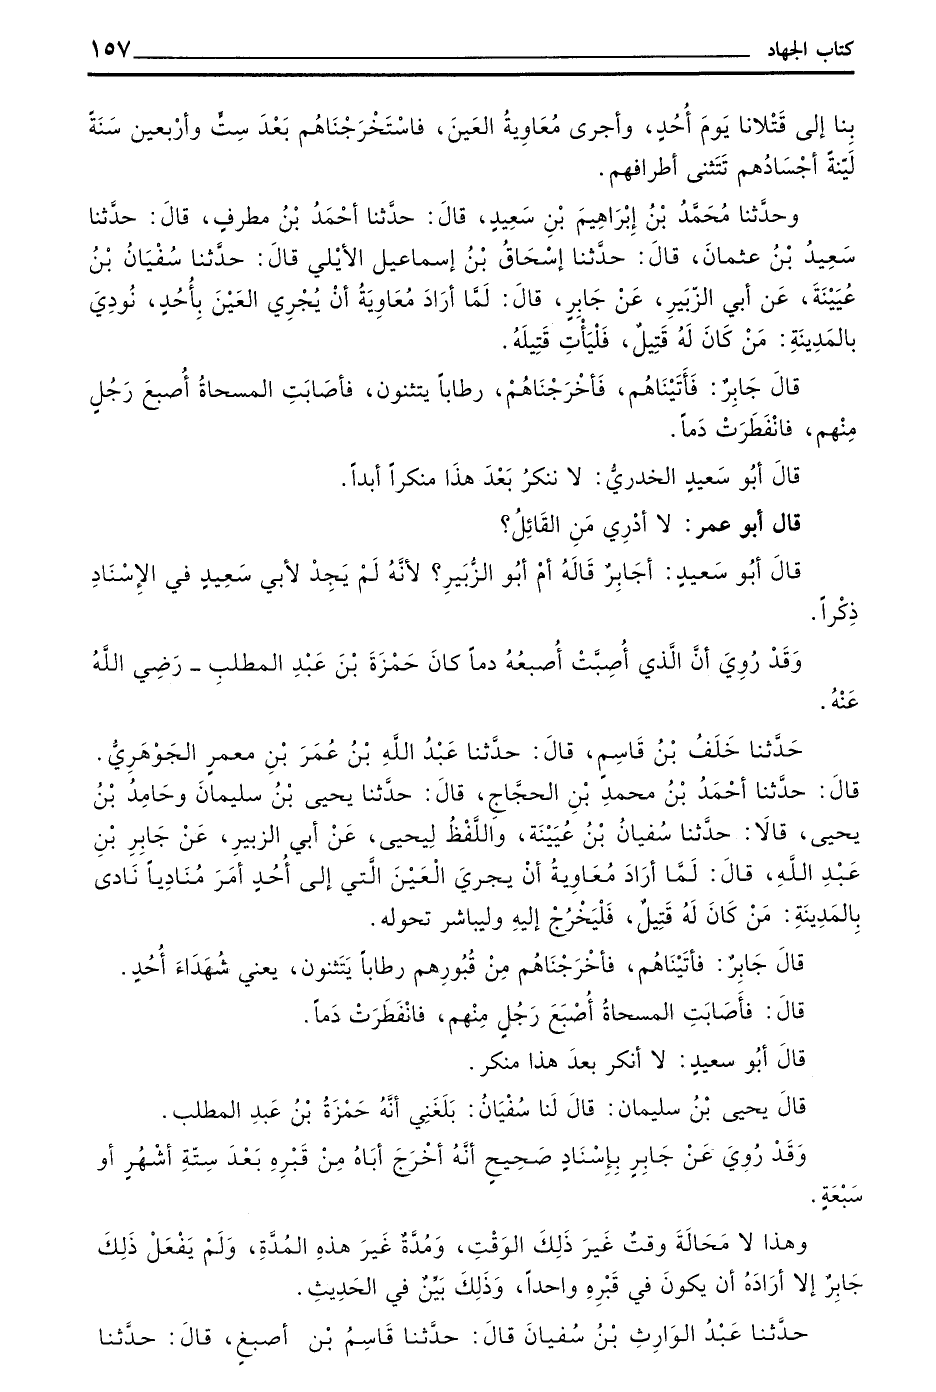 كتاب الجهاد ١٥٧
بِنا إلى قَتْلانا يَومَ أُحُدٍ، وأجرى مُعَاوِيةُ العَينَ، فاسْتَخْرَجْنَاهُم بَعْدَ سِتٍّ وأرْبعين سَنَةً
لَيّنةً أجْسَادُهم تَتَثنى أطرافهم.
وحدَّثنا مُحَمَّدُ بْنُ إِبْرَاهِيمَ بْنِ سَعِيدٍ، قالَ: حدَّثنا أحْمَدُ بْنُ مطرفٍ، قالَ: حدَّثنا
سَعِيدُ بْنُ عثمانَ، قالَ: حدَّثنا إسْحَاقُ بْنُ إسماعيل الأيْلي قالَ: حدَّثنا سُفْيَانُ بْنُ
عُيَيْنَةَ، عَن أبي الزّبَيرِ، عَنْ جَابِرٍ، قالَ: لَمَّا أرَادَ مُعَاوِيَةُ أنْ يُجْرِي العَيْنَ بِأُحُدٍ، نُودِيَ
بالمَدِينَةِ: مَنْ كَانَ لَهُ قَتِيلٌ، فَلْيَأْتِ قَتِيلَهُ.
قالَ جَابِرٌ: فَأَتَيْنَاهُم، فَأخْرَجْنَاهُمْ، رطاباً يتثنون، فأصَابَتِ المسحاةُ أُصبعَ رَجُلٍ
مِنْهم، فانْفَطَرَتْ دَماً.
قالَ أبُو سَعيدٍ الخدريُّ: لا ننكرُ بَعْدَ هذَا منكراً أبداً.
قال أبو عمر: لا أدْرِي مَنِ القَائِلُ؟
قالَ أبُو سَعيدٍ: أجَابِرٌ قَالَهُ أمْ أبُو الزُّبَيرِ؟ لأنَّهُ لَمْ يَجِدْ لأبي سَعِيدٍ في الإسْنَادِ
ذِكْراً.
وَقَدْ رُوِيَ أنَّ الَّذي أُصِبَّتْ أُصبعُهُ دماً كانَ حَمْزَةَ بْنَ عَبْدِ المطلبِ ـ رَضِي اللَّهُ
عَنْهُ.
حَدَّثنا خَلَفُ بْنُ قَاسِمٍ، قالَ: حدَّثنا عَبْدُ اللَّهِ بْنُ عُمَرَ بْنِ معمرٍ الجَوْهَرِيُّ.
قالَ: حدَّثنا أحْمَدُ بْنُ محمدِ بْنِ الحجَّاجِ، قالَ: حدَّثنا يحيى بْنُ سليمانَ وحَامِدُ بْنُ
يحيى، قالَا: حدَّثنا سُفيانُ بْنُ عُيَيْنَة، واللَّفْظُ لِيحيى، عَنْ أبي الزبيرِ، عَنْ جَابِرِ بْنِ
عَبْدِ اللَّهِ، قالَ: لَمَّا أرَادَ مُعَاوِيةُ أنْ يجريَ الْعَيْنَ الَّتي إلى أُحُدٍ أمَرَ مُنَادِياً نَادى
بِالمَدِينَةِ: مَنْ كَانَ لَهُ قَتِيلٌ، فَلْيَخْرُجْ إليهِ وليباشر تحوله.
قالَ جَابِرٌ: فأتَيْنَاهُم، فأخْرَجْنَاهُم مِنْ قُبُورِهم رطاباً يَتَثنون، يعني شُهَدَاءَ أُحُدٍ.
قالَ: فأَصَابَتِ المسحاةُ أُصْبَعَ رَجُلٍ مِنْهم، فانْفَطَرَتْ دَماً.
قالَ أبُو سعيدٍ: لا أنكر بعدَ هذا منكر.
قالَ يحيى بْنُ سليمان: قالَ لَنا سُفْيَانُ: بَلَغَنِي أنَّهُ حَمْزَةُ بْنُ عَبدِ المطلب.
وَقَدْ رُوِيَ عَنْ جَابِرٍ بِإسْنَادٍ صَحِيحٍ أنَّهُ أخْرَجَ أبَاهُ مِنْ قَبْرِهِ بَعْدَ سِتّةِ أشْهُرٍ أو
سَبْعَةٍ.
وهذا لا مَحَالَةَ وقتٌ غَيرَ ذَلِكَ الوَقْتِ، وَمُدَّةٌ غَيرَ هذهِ المُدَّةِ، وَلَمْ يَفْعَلْ ذَلِكَ
جَابِرٌ إلا أرَادَهُ أن يكونَ في قَبْرِهِ واحداً، وَذَلِكَ بَيِّنٌ في الحَدِيثِ.
حدَّثنا عَبْدُ الوَارِثِ بْنُ سُفيانَ قالَ: حدَّثنا قَاسِمُ بْنِ أصبغٍ، قالَ: حدَّثنا